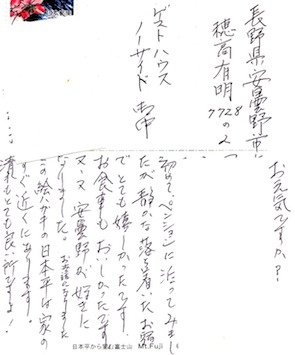 長野県安曇野市
穂高有明
7728の2
ゲストハウス
ノーサイド 御中
お元気ですか?
初めてペンションに泊ってみまし
たが静かな落ち着いたお宿
でとても嬉しかったです。
お食事もおいしかったです。
又々安曇野が好きに
なりました。お世話になりました
この絵ハガキの日本平は家の
すぐ近くにあります。
清水もとても良い所ですよ!
日本平から望む富士山 Mt.Fuji